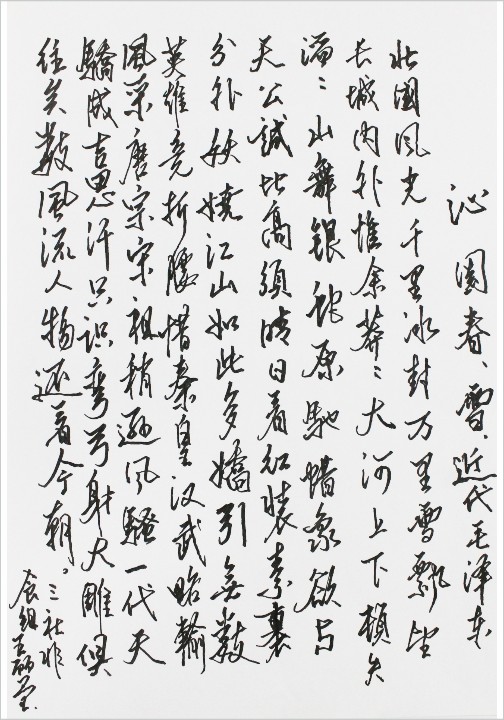 沁園春、雪、近代毛泽东
北國风光千里冰封万里雪飘望
长城内外惟余莽〻大河上下顿失
滔〻山舞银蛇原驰蜡象欲与
天公試比高須晴日看红装素裹
分外妖娆江山如此多嬌引無数
英雄竞折腰惜秦皇汉武略輸
風采唐宗宋祖稍逊风騷一代天
驕成吉思汗只识弯弓射大雕俱
往矣数風流人物还看今朝。